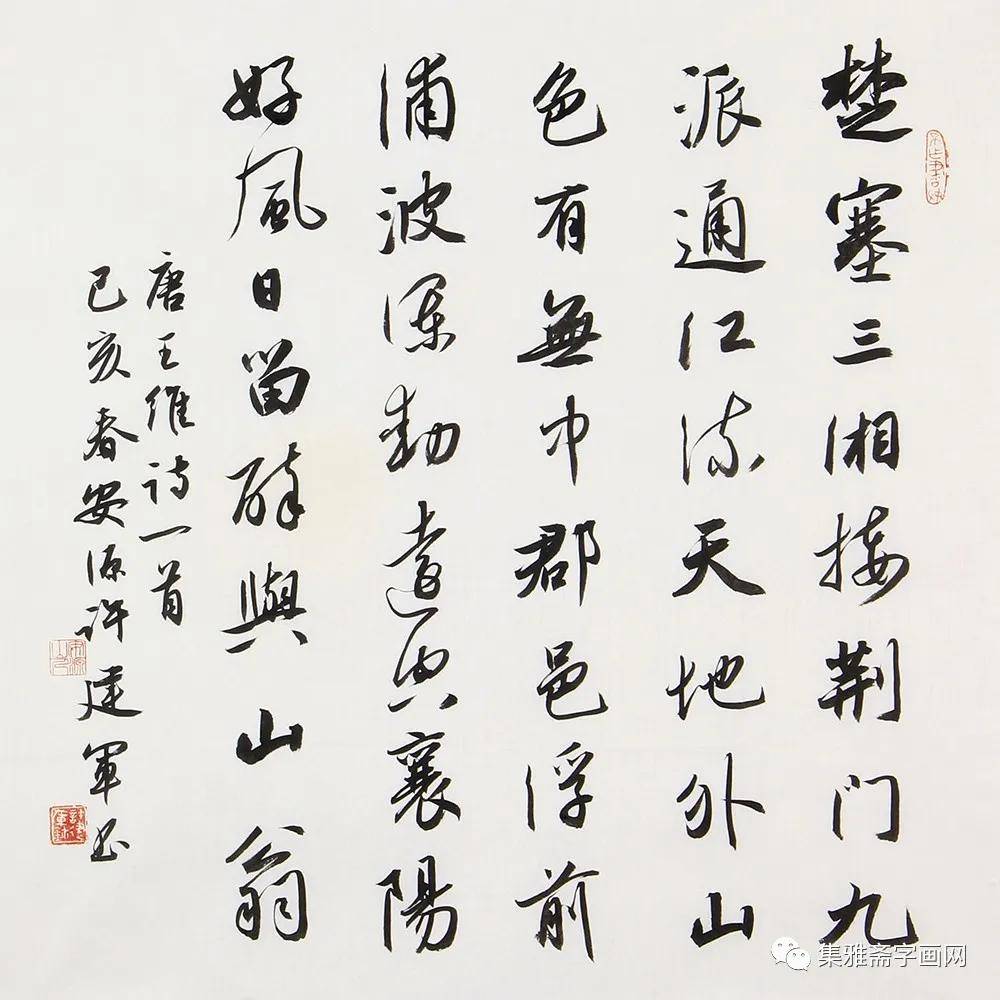 楚塞三湘接荆门九
派通江流天地外山
色有無中郡邑浮前
浦波澜動遠空襄陽
好風日留醉與山翁
唐王维诗一首
己亥春安源许建軍书
集雅斋字画网